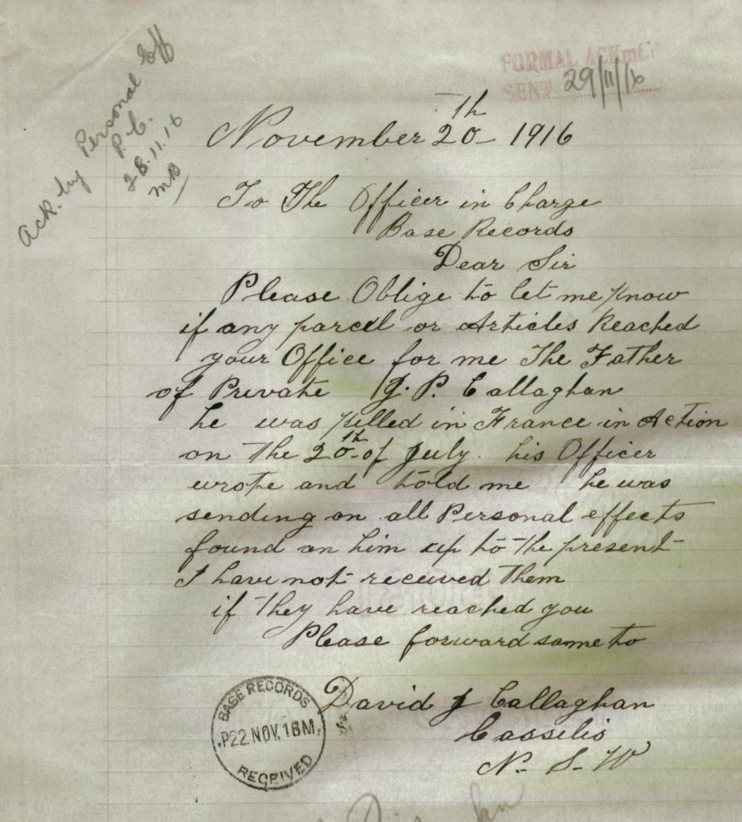 FORMAL ACKmCT
SENT 29/11/16
Ack. by Personal Eff
P.C.
28.11.16
MB
November 20th 1916
To The Officer in Charge
Base Records
Dear Sir
Please Oblige to let me know
if any parcel or Articles Reached
your Office for me The Father
of Private J. P. Callaghan
he was killed in France in Action
on the 20th of July. his Officer
wrote and told me he was
sending on all Personal effects
found on him up to the present
I have not received them
if they have reached you
Please forward same to
David J Callaghan
Cassilis
N. S. W
BASE RECORDS
P22 NOV.16M
RECEIVED